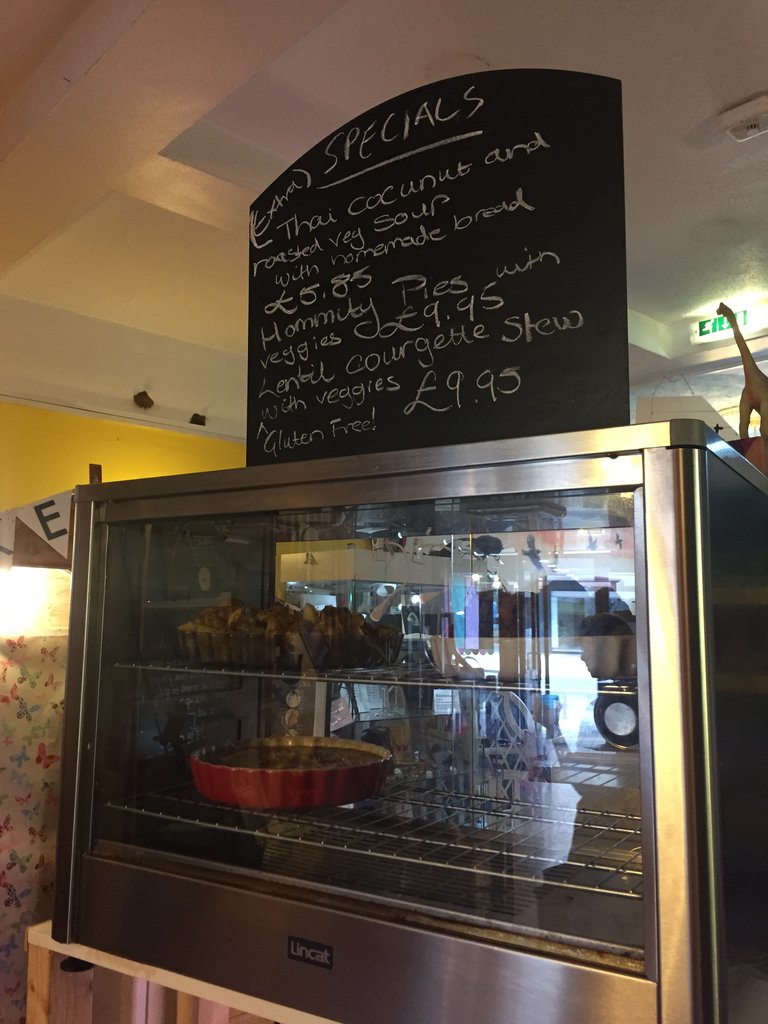 (Extra) SPECIALS
Thai cocunut and
roasted veg soup
with homemade bread
£5.85
Hommity Pies with
veggies £9.95
Lentil courgette stew
with veggies £9.95
^Gluten Free!
EXIT
E
Lincat